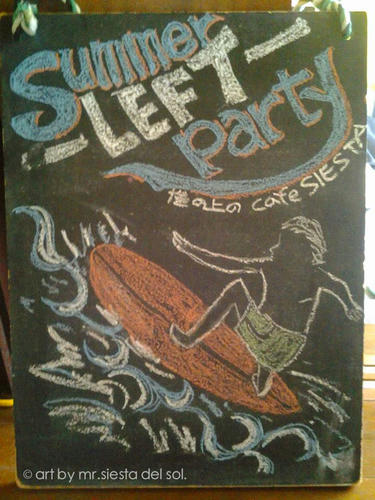 Summer
-LEFT-
party
崖の上の cafe SIESTA
© art by mr.siesta del sol.